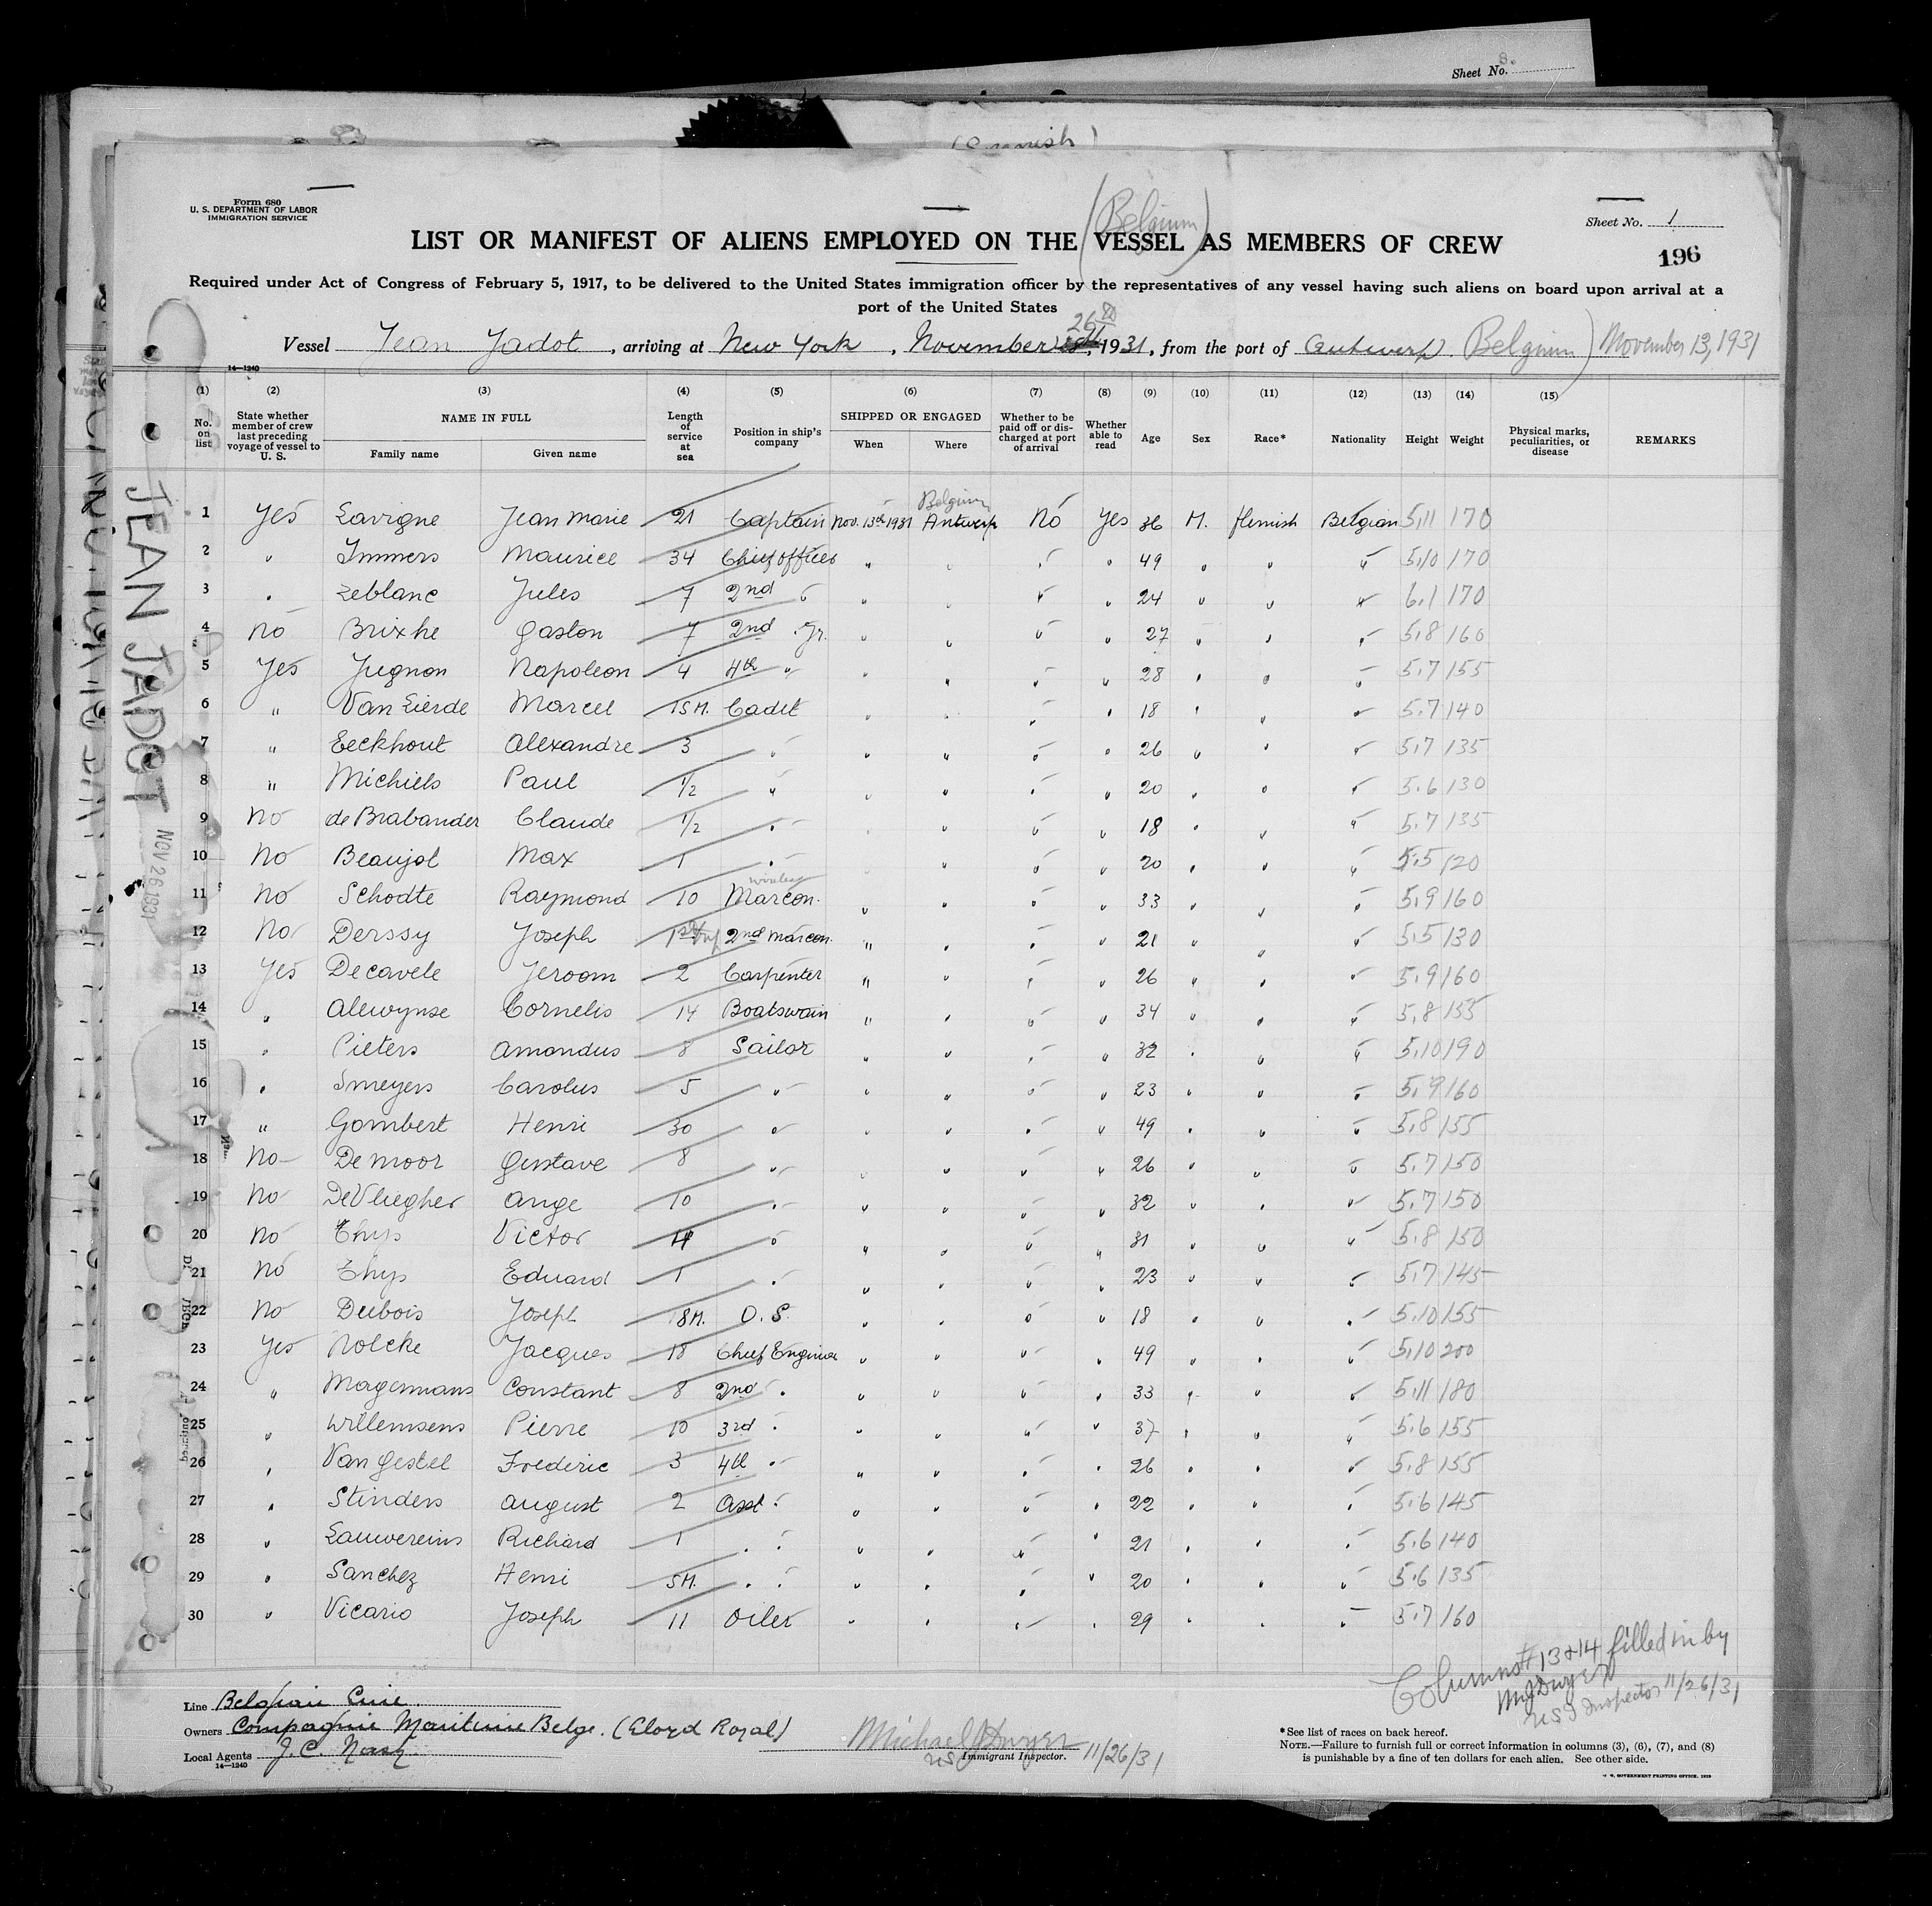 Sheet No. 8.
(Spanish)
Form 680
U. S. DEPARTMENT OF LABOR
IMMIGRATION SERVICE
Sheet No. 1
196
(Belgium)
LIST OR MANIFEST OF ALIENS EMPLOYED ON THE VESSEL AS MEMBERS OF CREW
Required under Act of Congress of February 5, 1917, to be delivered to the United States immigration officer by the representatives of any vessel having such aliens on board upon arrival at a
port of the United States
Vessel Jean Jadot, arriving at New York, November 26th, 1931, from the port of Antwerp Belgium) November 13, 1931
14—1240
(1) (2) (3) (4) (5) (6) (7) (8) (9) (10) (11) (12) (13) (14) (15)
No. on list State whether member of crew last preceding voyage of vessel to U. S. NAME IN FULL Family name Given name Length of service at sea Position in ship's company SHIPPED OR ENGAGED When Where Whether to be paid off or discharged at port of arrival Whether able to read Age Sex Race* Nationality Height Weight Physical marks, peculiarities, or disease REMARKS
Belgium
1 Yes Lavigne Jean Marie 21 Captain Nov. 13th 1931 Antwerp No Yes 36 M. flemish Belgian 5,11 170
2 " Immers Maurice 34 Chief officer " " " " 49 " " " 5,10 170
3 " Leblanc Jules 7 2nd " " " " " 24 " " " 6.1 170
4 No Brixhe Gaston 7 2nd " " " " 27 " " " 5,8 160
5 Yes Jugnon Napoleon 4 4th " " " " " 28 " " " 5.7 155
6 " Van Lierde Marcel 15M. Cadet " " " " 18 " " " 5.7 140
7 " Eeckhout Alexandre 3 " " " " " 26 " " " 5,7 135
8 " Michiels Paul 1/2 " " " " " 20 " " " 5.6 130
9 No de Brabander Claude 1/2 " " " " " 18 " " " 5.7 135
10 No Beaujol Max 1 " " " " 20 " " " 5.5 120
wireless
11 No Schodte Raymond 10 Marcon. " " " " 33 " " " 5,9 160
12 No Derssy Joseph 1st 2nd Marcon. " " " " 21 " " " 5.5 130
13 Yes Decavele Jeroom 2 Carpenter " " " " 26 " " " 5,9 160
14 " Alewynse Cornelis 14 Boatswain " " " " 34 " " " 5,8 155
15 " Pieters Amondus 8 Sailor " " " " 32 " " " 5,10 190
16 " Smeyers Carolus 5 " " " " " 23 " " " 5,9 160
17 " Gombert Henri 30 " " " " " 49 " " " 5,8 155
18 No De moor Gustave 8 " " " " " 26 " " " 5,7 150
19 No De Vliegher Ange 10 " " " " " 32 " " " 5,7 150
20 No Thys Victor 4 " " " " " 31 " " " 5,8 150
21 No Thys Eduard 1 " " " " " 23 " " " 5,7 145
22 No Dubois Joseph 18M. O. S. " " " " 18 " " " 5,10 155
23 Yes Nolcke Jacques 18 Chief Engineer " " " " 49 " " " 5,10 200
24 " Magermans Constant 8 2nd " " " " " 33 " " " 5,11 180
25 " Willemsens Pierre 10 3rd " " " " " 37 " " " 5.6 155
26 " Van Gestel Frederic 3 4th " " " " " 26 " " " 5.8 155
27 " Stinders August 2 Asst " " " " " 22 " " " 5.6 145
28 " Lauwereins Richard 1 " " " " " " 21 " " " 5.6 140
29 " Sanchez Henri 5M. " " " " " " 20 " " " 5.6 135
30 " Vicario Joseph 11 Oiler " " " " 29 " " " 5.7 160
JEAN JADOT NOV 26 1931
Columns 13 & 14 filled in by
M J Dwyer
US Inspector 11/26/31
Line Belgian Line.
Owners Compagnie Maritime Belge. (Lloyd Royal)
Local Agents J. C. Nash.
14—1240
Michael J Dwyer
US Immigrant Inspector. 11/26/31
*See list of races on back hereof.
NOTE.—Failure to furnish full or correct information in columns (3), (6), (7), and (8)
is punishable by a fine of ten dollars for each alien. See other side.
U. S. GOVERNMENT PRINTING OFFICE. 1929